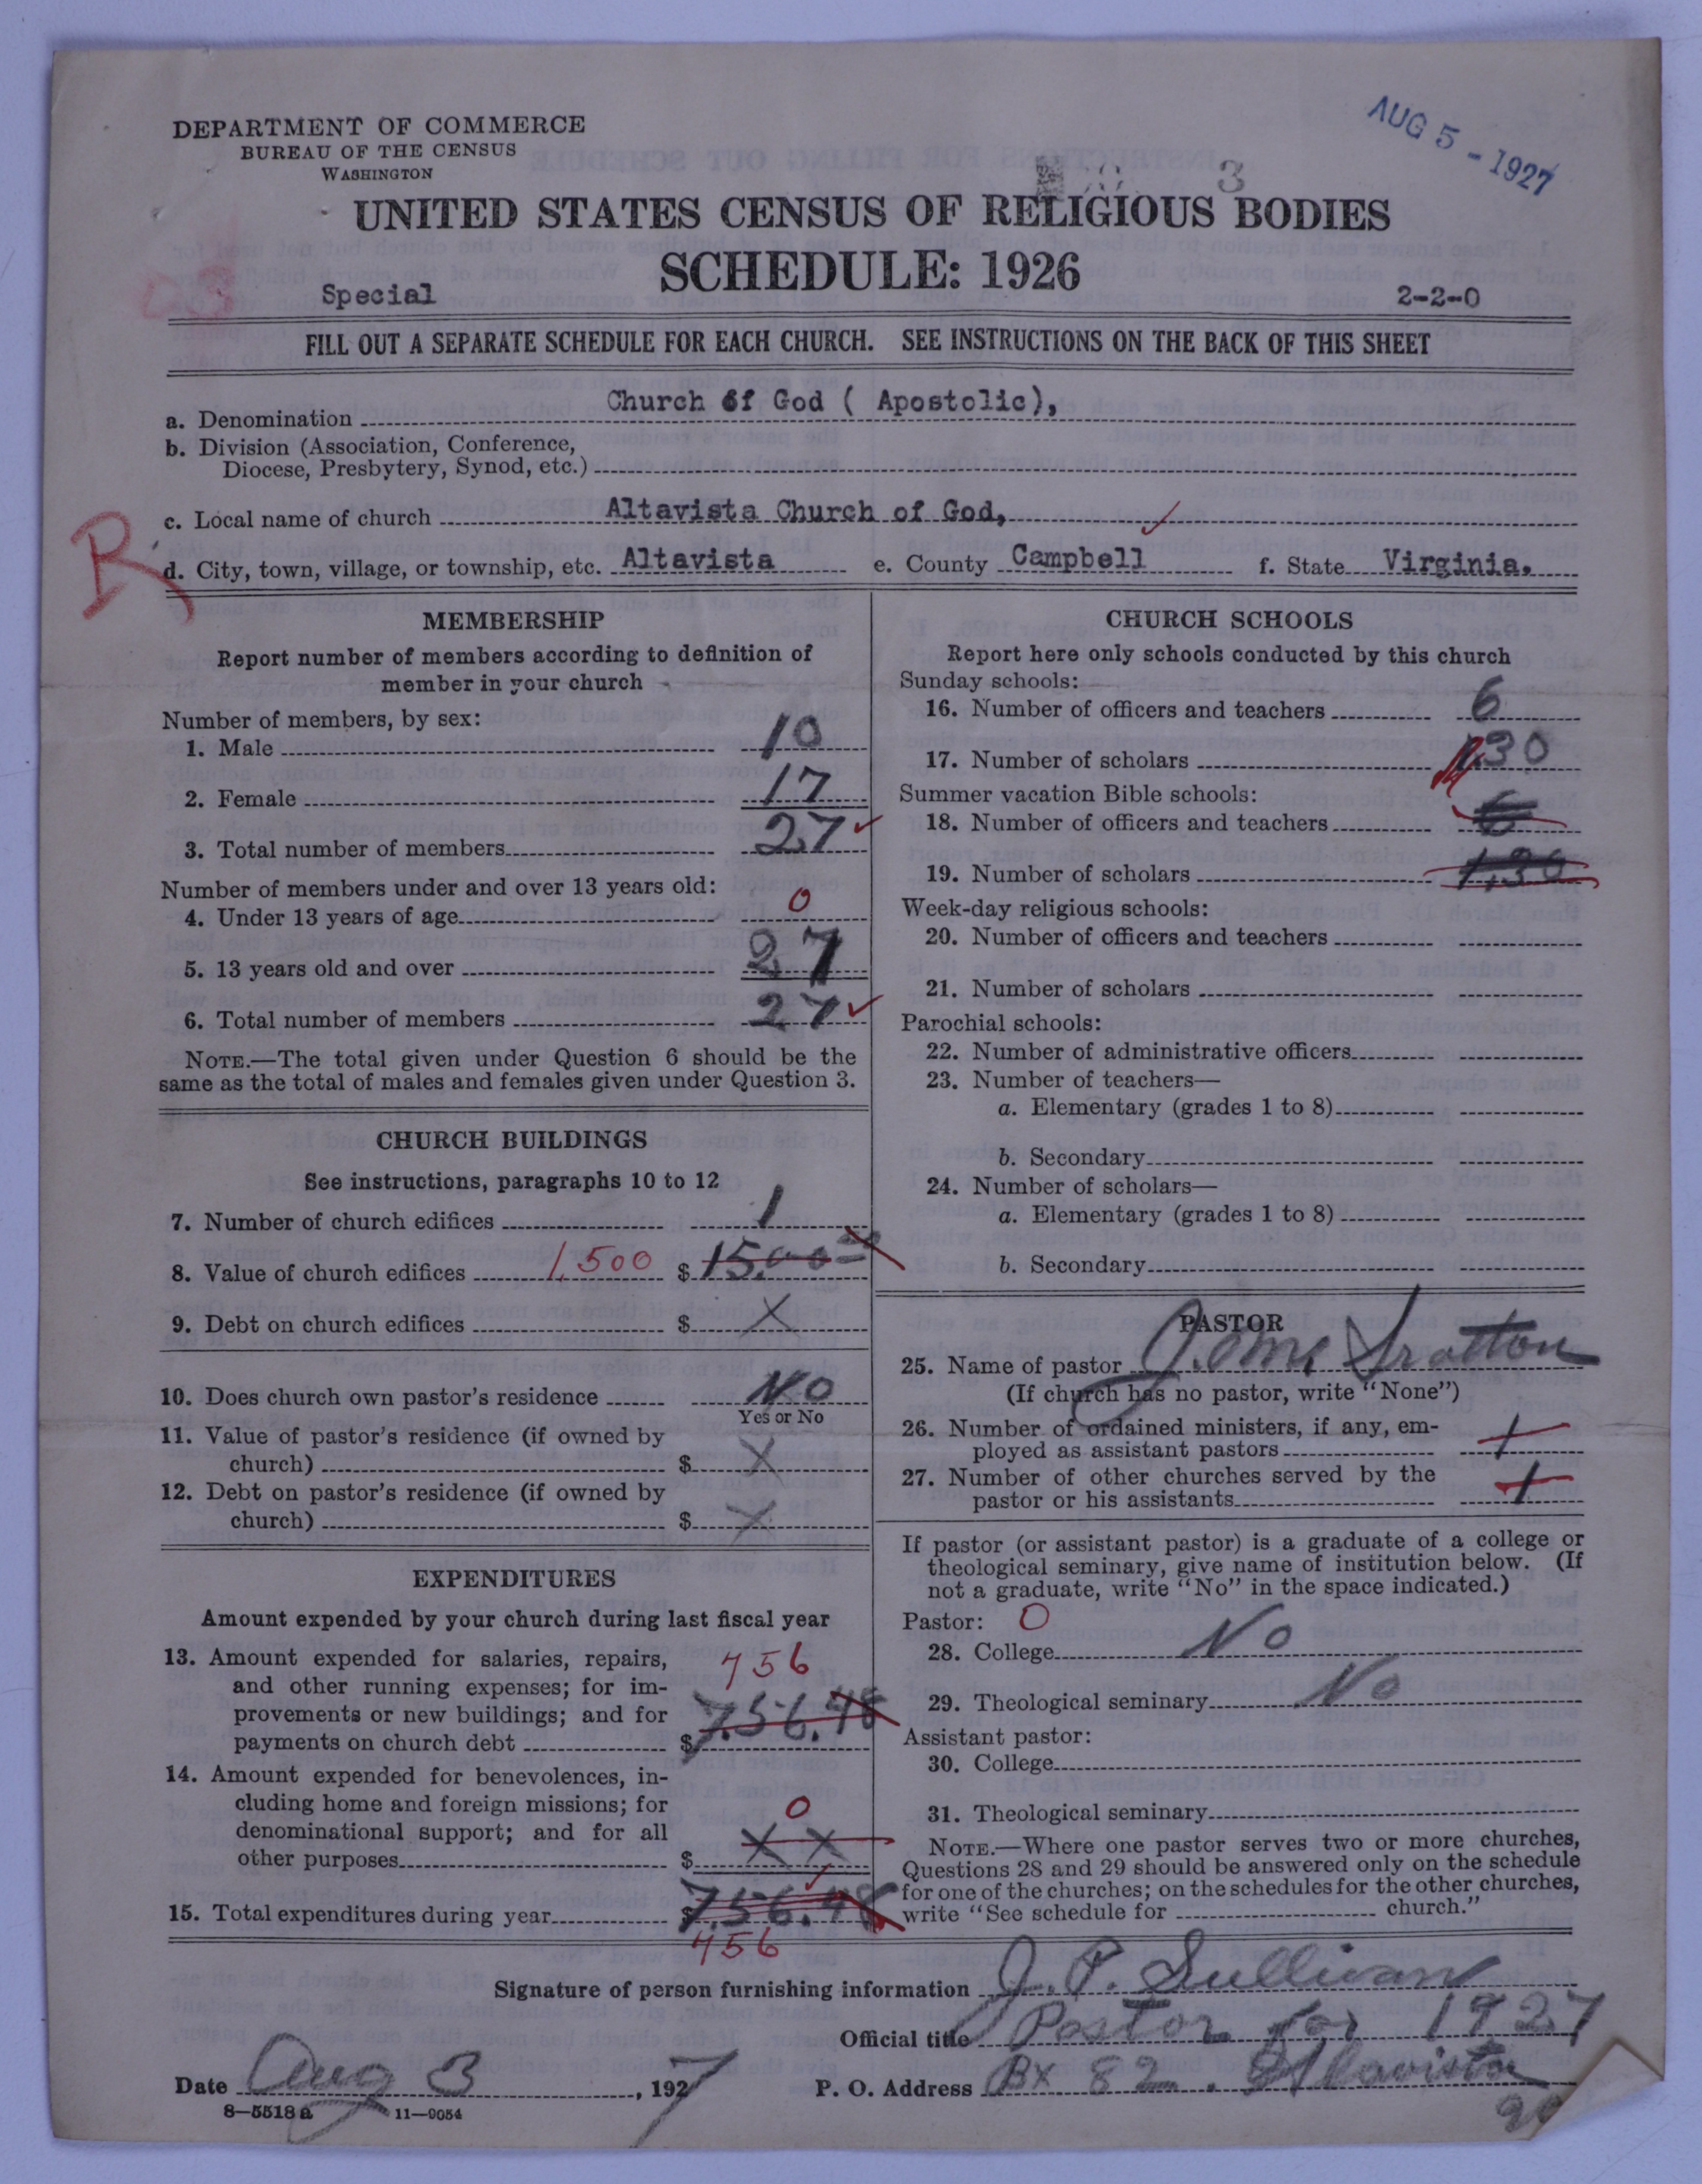 AUG 5 - 1927
DEPARTMENT OF COMMERCE
BUREAU OF THE CENSUS
WASHINGTON
3
UNITED STATES CENSUS OF RELIGIOUS BODIES
SCHEDULE: 1926
Special
2-2-0
FILL OUT A SEPARATE SCHEDULE FOR EACH CHURCH. SEE INSTRUCTIONS ON THE BACK OF THIS SHEET
a. Denomination Church of God ( Apostolic),
b. Division (Association, Conference,
Diocese, Presbytery, Synod, etc.)
c. Local name of church Altavista Church of God,
R
d. City, town, village, or township, etc. Altavista e. County Campbell f. State Virginia.
MEMBERSHIP
Report number of members according to definition of
member in your church
Number of members, by sex:
1. Male 10
2. Female 17
3. Total number of members 27
Number of members under and over 13 years old:
4. Under 13 years of age 0
5. 13 years old and over 27
6. Total number of members 27
NOTE.—The total given under Question 6 should be the
same as the total of males and females given under Question 3.
CHURCH BUILDINGS
See instructions, paragraphs 10 to 12
7. Number of church edifices 1
8. Value of church edifices 1,500 $ 15.00
9. Debt on church edifices $ X
10. Does church own pastor's residence NO
Yes or No
11. Value of pastor's residence (if owned by
church) $ X
12. Debt on pastor's residence (if owned by
church) $ X
EXPENDITURES
Amount expended by your church during last fiscal year
13. Amount expended for salaries, repairs,
and other running expenses; for im-
provements or new buildings; and for
payments on church debt $ 7.56.48
756
14. Amount expended for benevolences, in-
cluding home and foreign missions; for
denominational support; and for all
other purposes $ X X
0
15. Total expenditures during year $ 7.56.48
756
CHURCH SCHOOLS
Report here only schools conducted by this church
Sunday schools:
16. Number of officers and teachers 6
17. Number of scholars 130
Summer vacation Bible schools:
18. Number of officers and teachers 6
19. Number of scholars 1,30
Week-day religious schools:
20. Number of officers and teachers
21. Number of scholars
Parochial schools:
22. Number of administrative officers
23. Number of teachers—
a. Elementary (grades 1 to 8)
b. Secondary
24. Number of scholars—
a. Elementary (grades 1 to 8)
b. Secondary
PASTOR
25. Name of pastor
(If church has no pastor, write "None")
26. Number of ordained ministers, if any, em-
ployed as assistant pastors 1
27. Number of other churches served by the
pastor or his assistants 1
If pastor (or assistant pastor) is a graduate of a college or
theological seminary, give name of institution below. (If
not a graduate, write "No" in the space indicated.)
Pastor: 0
28. College No
29. Theological seminary No
Assistant pastor:
30. College
31. Theological seminary
NOTE.—Where one pastor serves two or more churches,
Questions 28 and 29 should be answered only on the schedule
for one of the churches; on the schedules for the other churches,
write "See schedule for church."
Signature of person furnishing information J. P. Sullivan
Official title Pastor for 1927
Date Aug 3, 1927 P. O. Address BX 82. Altavista
8—5518a 11—9054